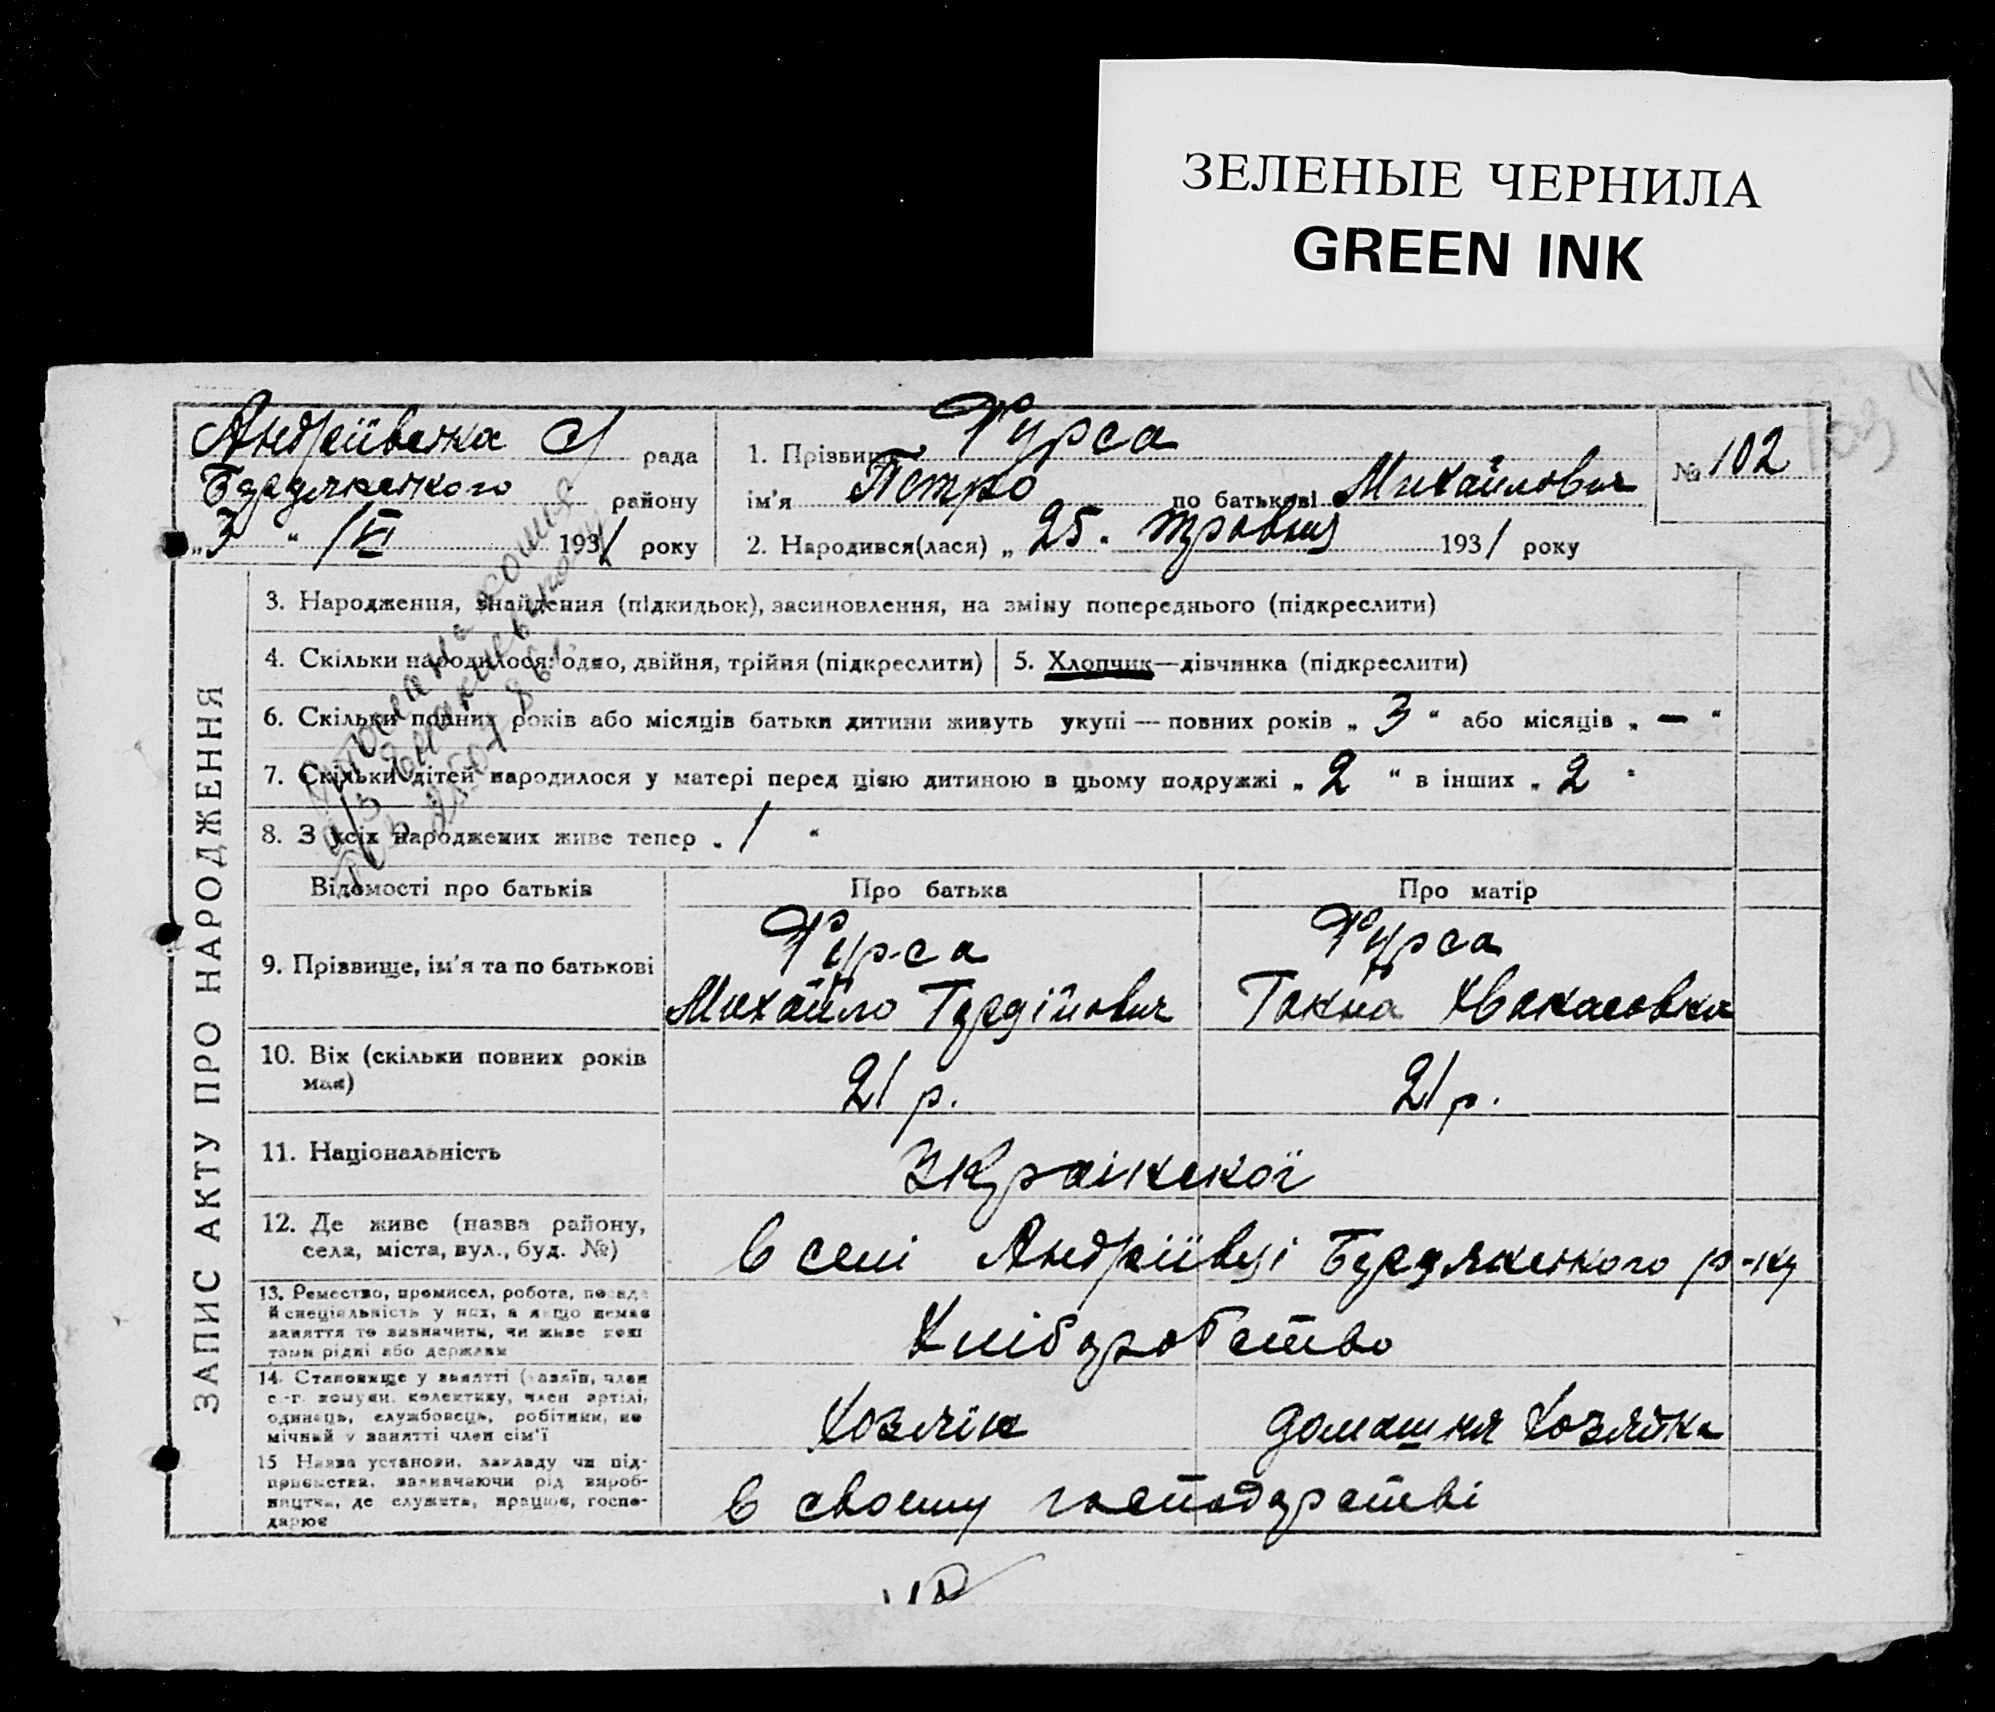 ЗЕЛЕНЫЕ ЧЕРНИЛА
GREEN INK
Андріївська С/ рада
району
„3“ /VI 1931 року
1. Прізвище Фурса
ім'я Петро по батькові Михайлович
№ 102
2. Народився(лася) „25. травня 1931 року
ЗАПИС АКТУ ПРО НАРОДЖЕННЯ
3. Народження, знайдення (підкидьок), засиновлення, на зміну попереднього (підкреслити)
4. Скільки народилося: одно, двійня, трійня (підкреслити)
5. Хлопчик—дівчинка (підкреслити)
6. Скільки повних років або місяців батьки дитини живуть укупі — повних років „3“ або місяців „—“
7. Скільки дітей народилося у матері перед цією дитиною в цьому подружжі „2“ в інших „2“
8. З усіх народжених живе тепер „1“
Відомості про батьків
Про батька
Про матір
9. Прізвище, ім'я та по батькові
Фурса
Михайло
Фурса
10. Вік (скільки повних років має)
21 р.
21 р.
11. Національність
12. Де живе (назва району,
села, міста, вул., буд. №)
в селі Андріївці р-ну
13. Ремество, промисел, робота, посада
й спеціяльність у них, а якщо немає
заняття то визначити, чи живе кош
тами рідні або держави
Хліборобство
14. Становище у занятті (хазяїн, член
с.-г. комуни, колективу, член артілі,
одинець, службовець, робітник, по
мічний у занятті член сім'ї
Хозяїн
домашня Хозяйка
15 Назва установи, закладу чи під-
приємства, зазначаючи рід вироб-
ництва, де служить, працює, госпо-
дарює
в своєму господарстві